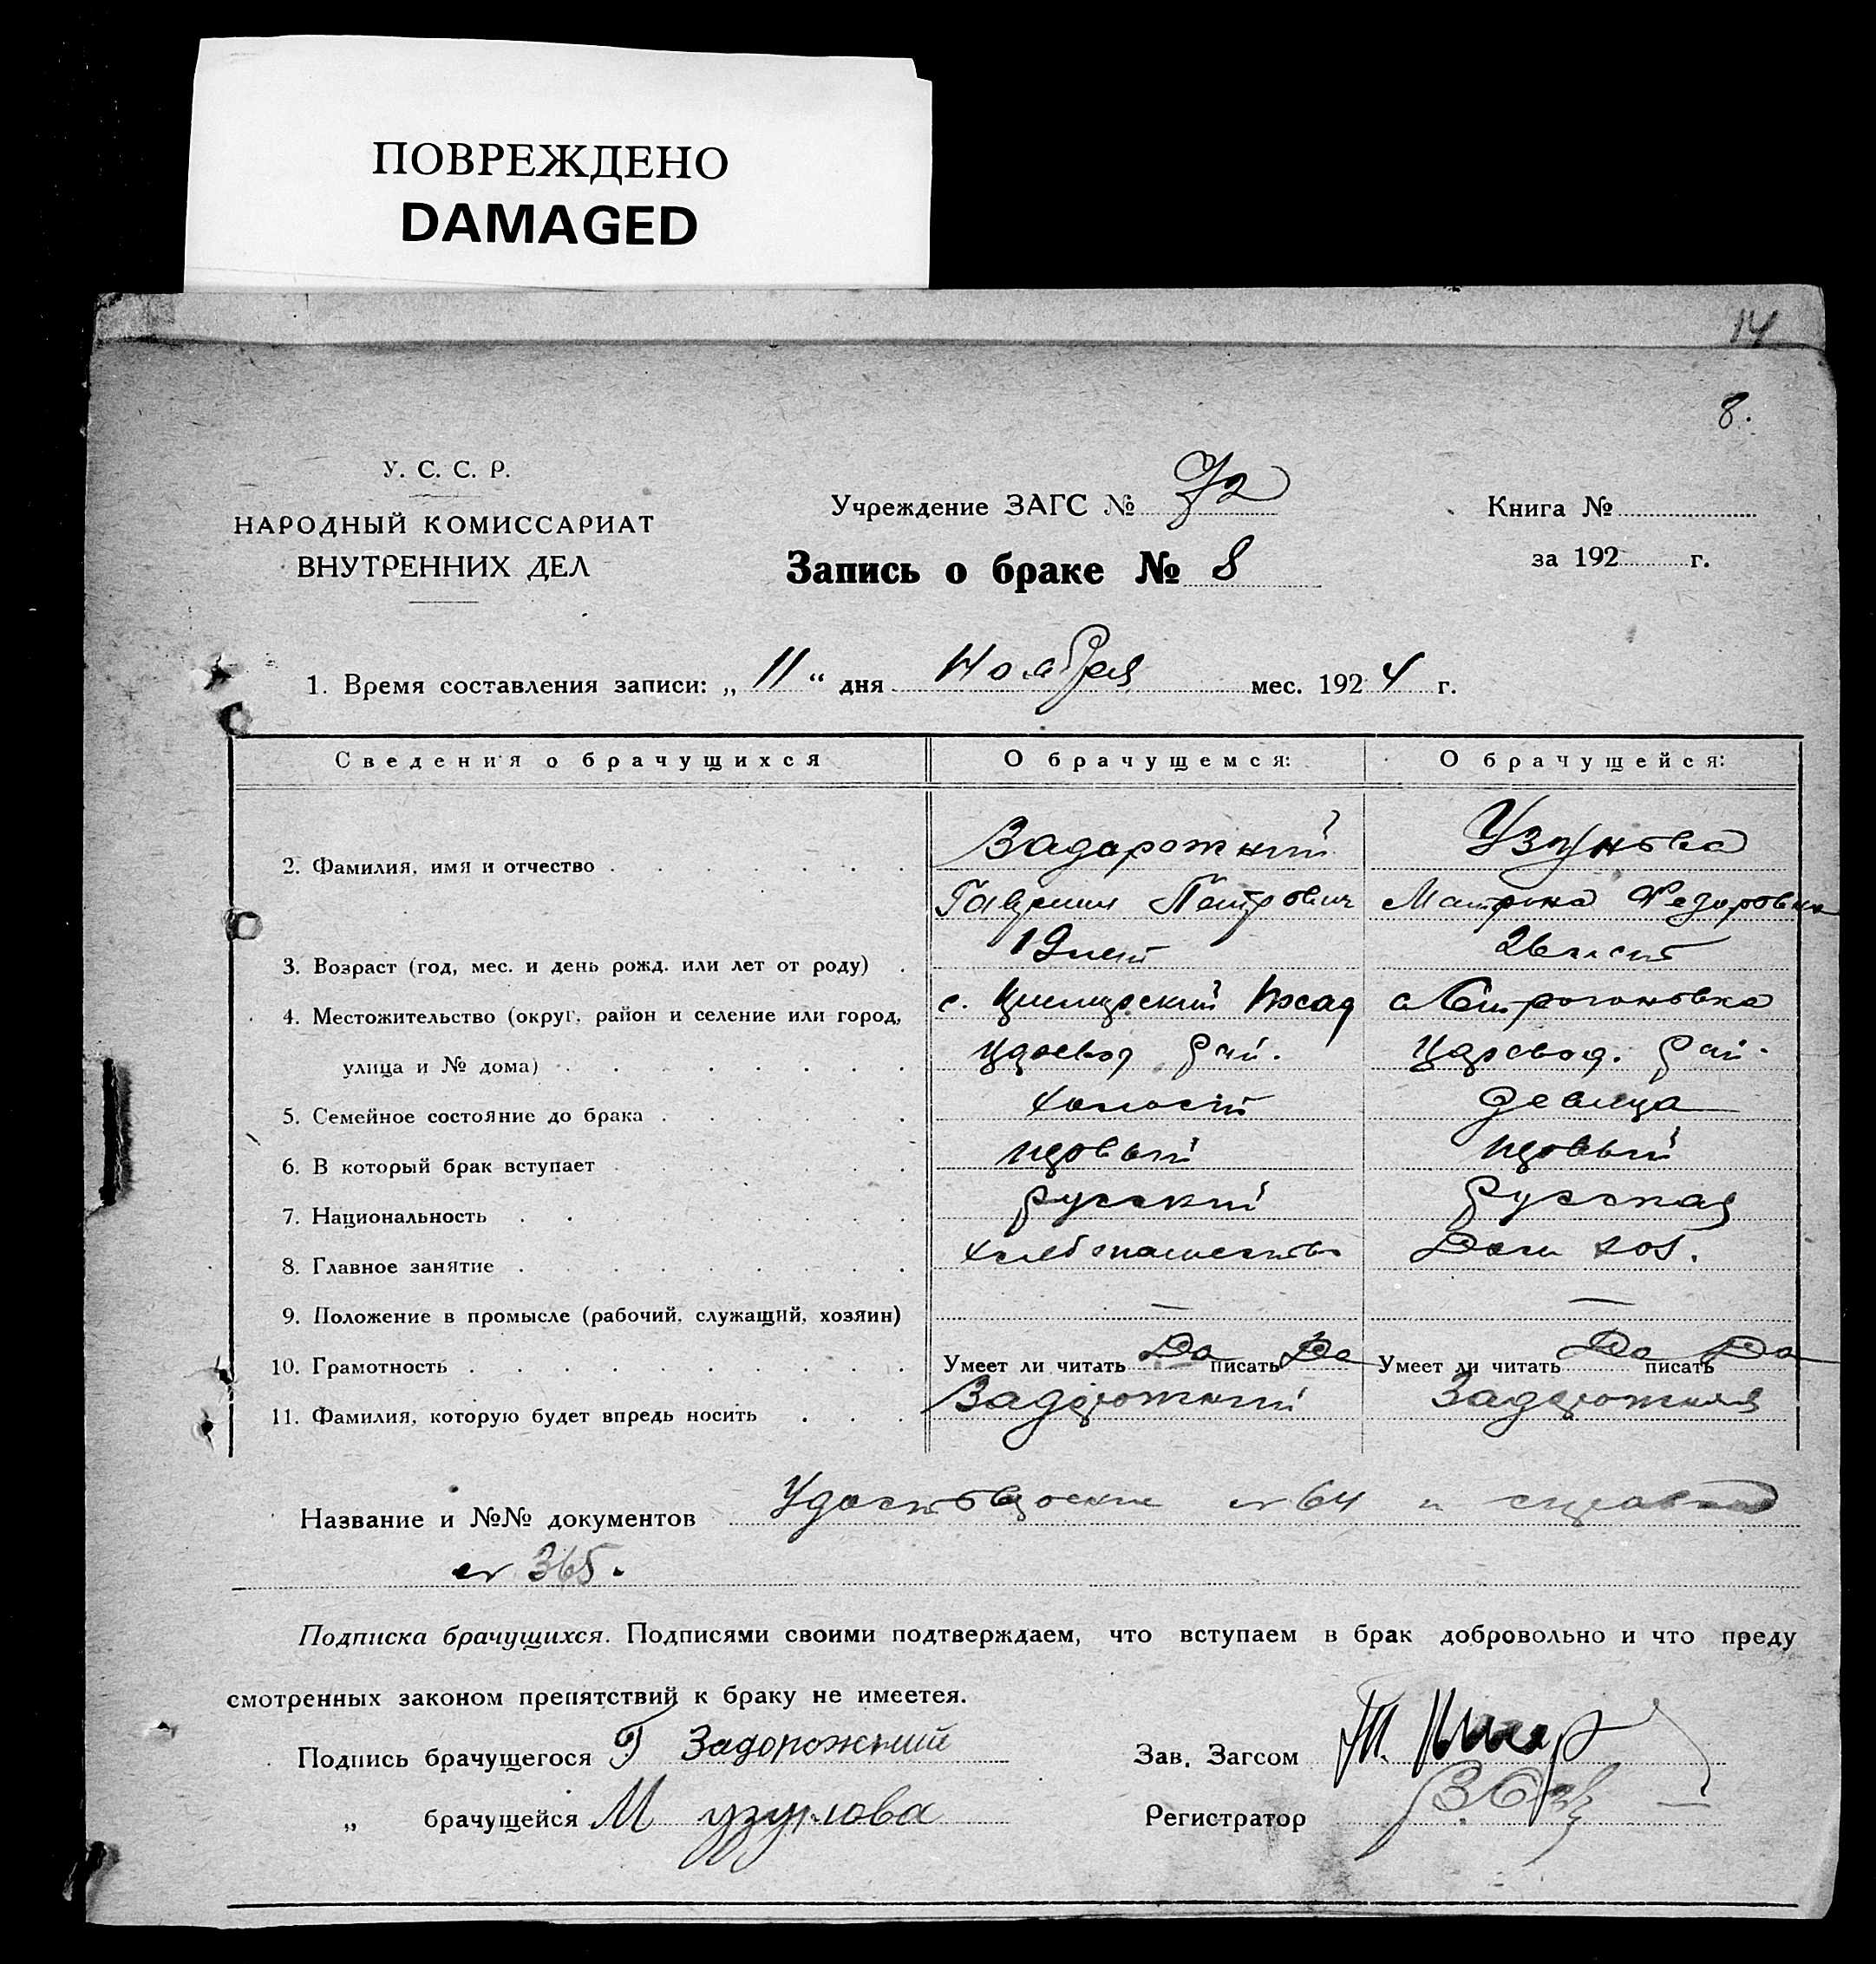 ПОВРЕЖДЕНО
DAMAGED
14
8.
У. С. С. Р.
НАРОДНЫЙ КОМИССАРИАТ
ВНУТРЕННИХ ДЕЛ
Учреждение ЗАГС № 72
Книга №
Запись о браке № 8
за 192 г.
1. Время составления записи: „ 11 “ дня Ноября мес. 192 4 г.
Сведения о брачущихся О брачущемся: О брачущейся:
2. Фамилия, имя и отчество Задорожний Узунова
Гавриил Петрович Матрона Федоровна
3. Возраст (год, мес. и день рожд. или лет от роду) 19 лет 26 лет
4. Местожительство (округ, район и селение или город, с. Посад с.
улица и № дома) рай. Царевод. рай.
5. Семейное состояние до брака холост девица
6. В который брак вступает первый первый
7. Национальность русский русская
8. Главное занятие хлебопашество Дом хоз.
9. Положение в промысле (рабочий, служащий, хозяин) — —
10. Грамотность Умеет ли читать Да писать Да Умеет ли читать Да писать Да
11. Фамилия, которую будет впредь носить Задорожний Задорожняя
Название и №№ документов № 64 и справка
№ 365.
Подписка брачущихся. Подписями своими подтверждаем, что вступаем в брак добровольно и что преду
смотренных законом препятствий к браку не имеетея.
Подпись брачущегося Г Задорожний
Зав. Загсом
„ брачущейся М узунова
Регистратор